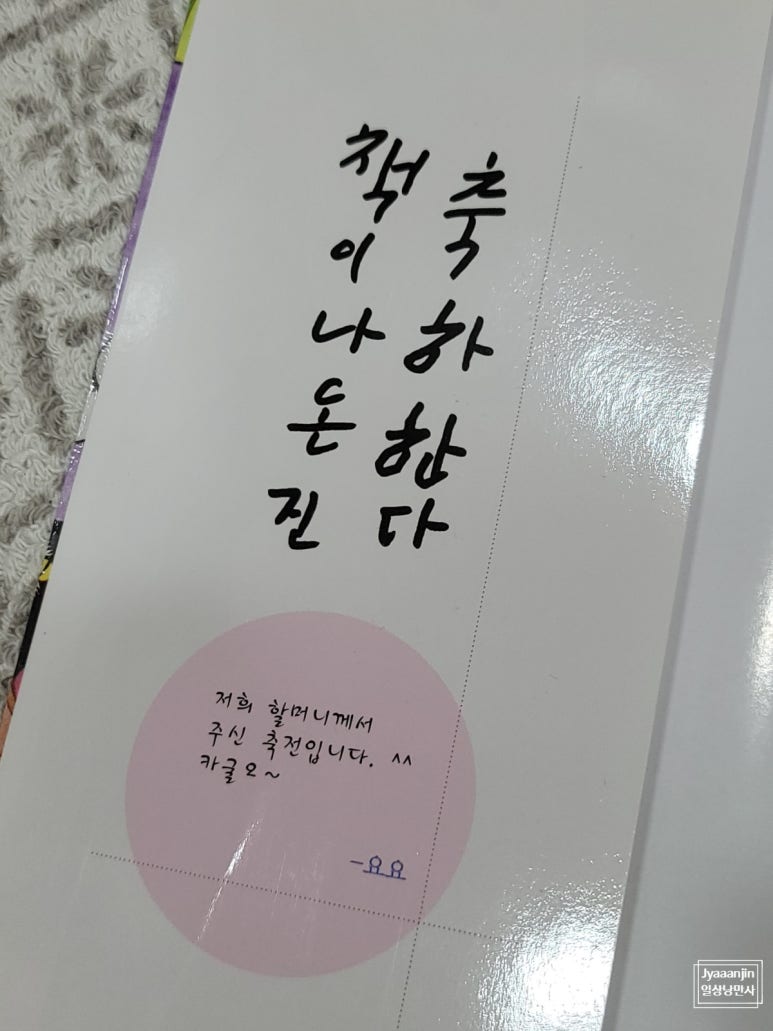 축하한다
책이나돈진
저희 할머니께서
주신 축전입니다. ^^
카굴오~
-요요
Jyaaanjin
일상낭만사